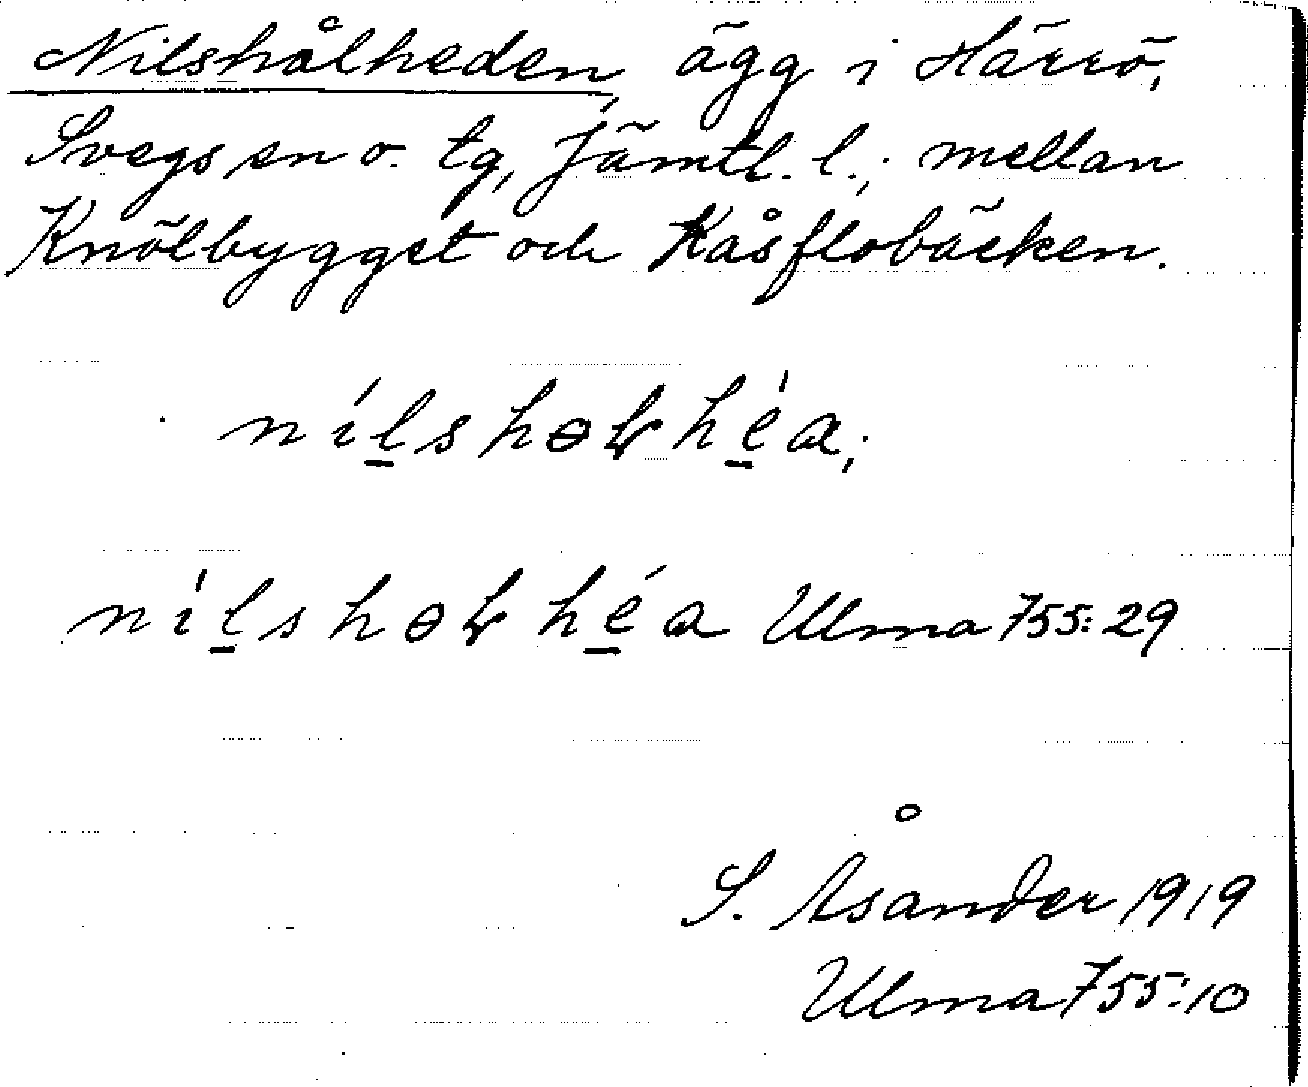 Nilshålheden, ägg i Härrö,
Svegs sn o. tg, Jämtl. l.; mellan
Knölbygget och Kåsflobäcken.
Ulma 755:29
S. Åsander 1919
Ulma 755:10